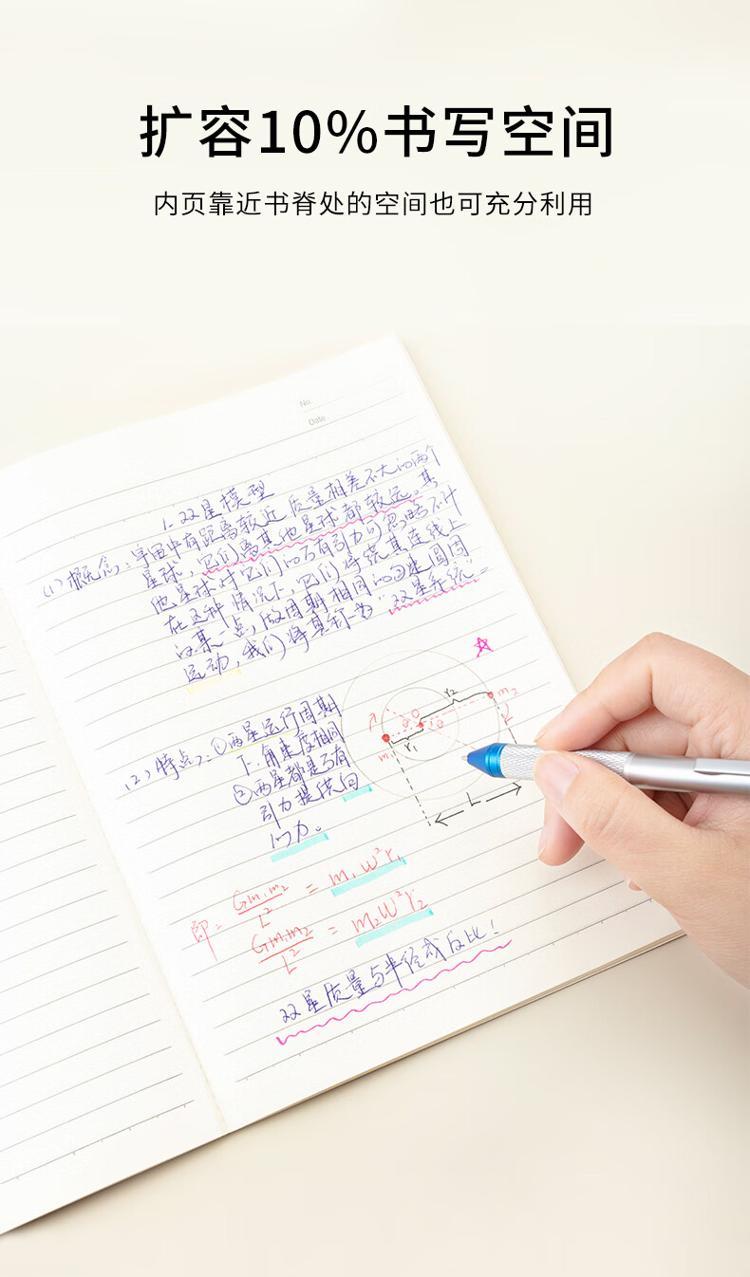 扩容10%书写空间
内页靠近书脊处的空间也可充分利用
No.
Date
1.双星模型
(1)概念:宇宙中有距离较近 质量相差不大的两个
星球,它们离其他星球都较远。其
他星球对它们的万有引力可忽略不计
在这种情况下,它们将绕其连线上
的某一点,做周期相同的匀速圆周
运动,我们将其称为"双星系统"
(2)特点:①两星运行周期
T.角速度相同
②两星都是万有
引力提供向
心力。
m₁ r₁ O r₂ m₂
L
即:Gm₁m₂/L² = m₁W²r₁
Gm₁m₂/L² = m₂W²r₂
双星质量与半径成反比!